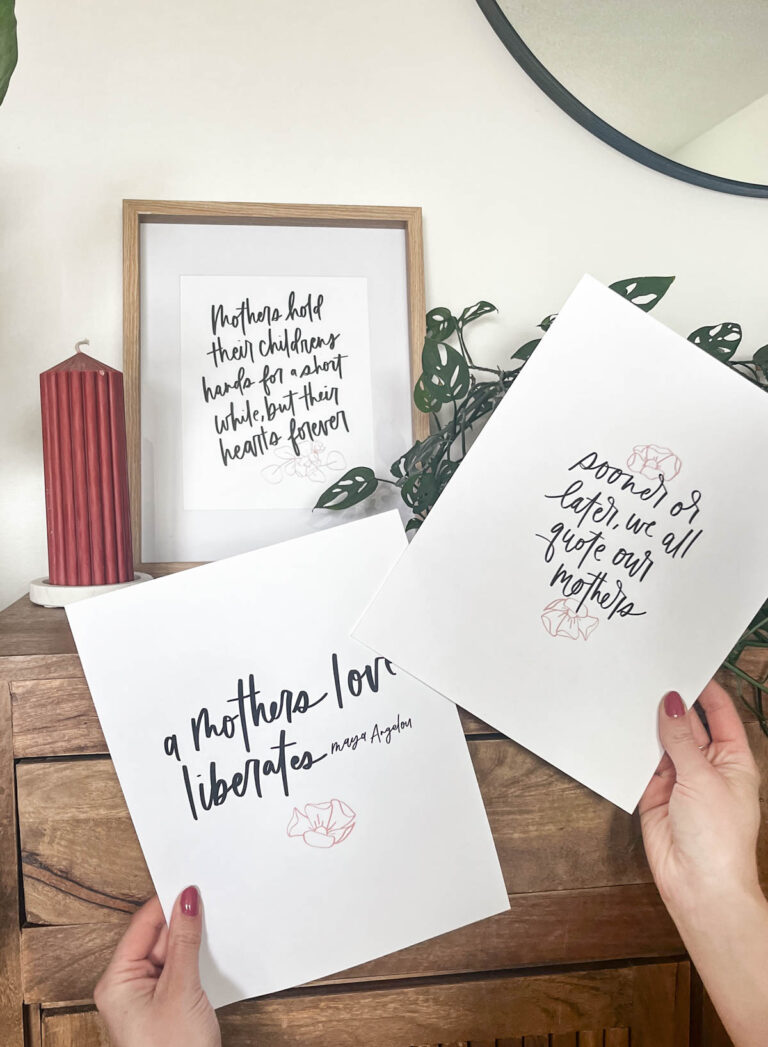 Mothers hold
their childrens
hands for a short
while, but their
hearts forever
sooner or
later, we all
quote our
mothers
a mothers love
liberates maya Angelou